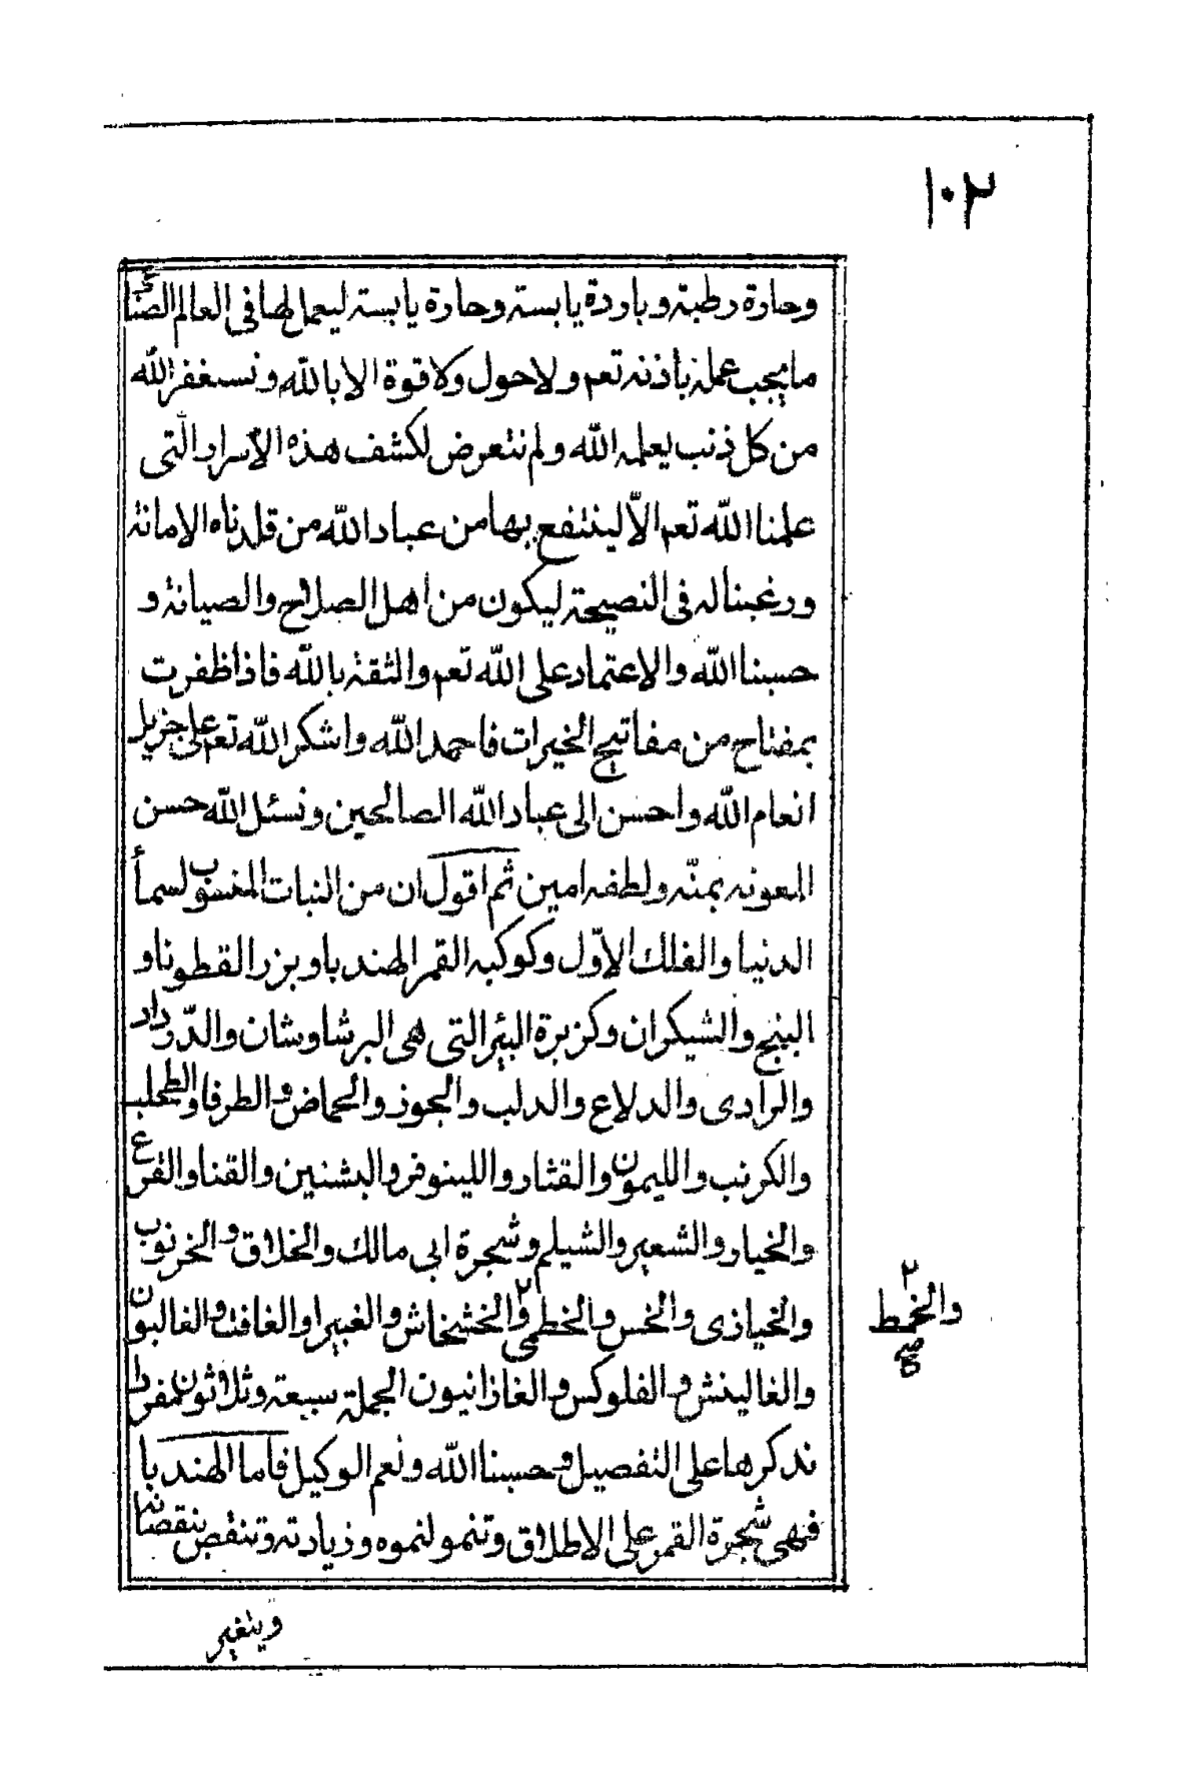 ١٠٢
وحارة رطبة وباردة يابسة وحارة يابسة ليعمل لها فى العالم الصناعى
ما يجب عمله باذنه تعم ولا حول ولا قوة الا بالله ونستغفر الله
من كل ذنب يعلمه الله ولم نتعرض لكشف هذه الاسرار الّتى
علمنا الله تعم الاّ لينتفع بها من عباد الله من قلدناه الامانة
ورغبناله فى النصيحة ليكون من اهل الصلاح والصيانة و
حسبنا الله والاعتماد على الله تعم والثقة بالله فاذا ظفرت
بمفتاح من مفاتيح الخيرات فاحمد الله واشكر الله تعم على جزيل
انعام الله واحسن الى عباد الله الصالحين ونسئل الله حسن
المعونه بمنّه ولطفه امين ثم اقول ان من النبات المنسوب لسمأ
الدنيا والفلك الاوّل وكوكبه القمر الهندبا وبزر القطونا و
البنج والشيكران وكزبرة البئر التى هى البرشاوشان والدّودار
والرادى والدلاع والدلب والجوز والحماض والطرفا والطحلب
والكرنب والليمون والقثار واللينوفر والبشنين والقنا والقرع
والخيار والشعير والشيلم وشجرة ابى مالك والخلاق والخرنوب
والخيازى والخس والخطمى ٢ والخشخاش والغبيرا والغافت والغالبون
والخمط ٢ صح
والغالينش والفلوكس والغازانيون الجملة سبعة وثلاثون مفردا
نذكرها على التفصيل وحسبنا الله ونعم الوكيل فاما الهندبا
فهى شجرة القمر على الاطلاق وتنمو لنموه وزيادته وتنقص بنقصانه
ويتغير